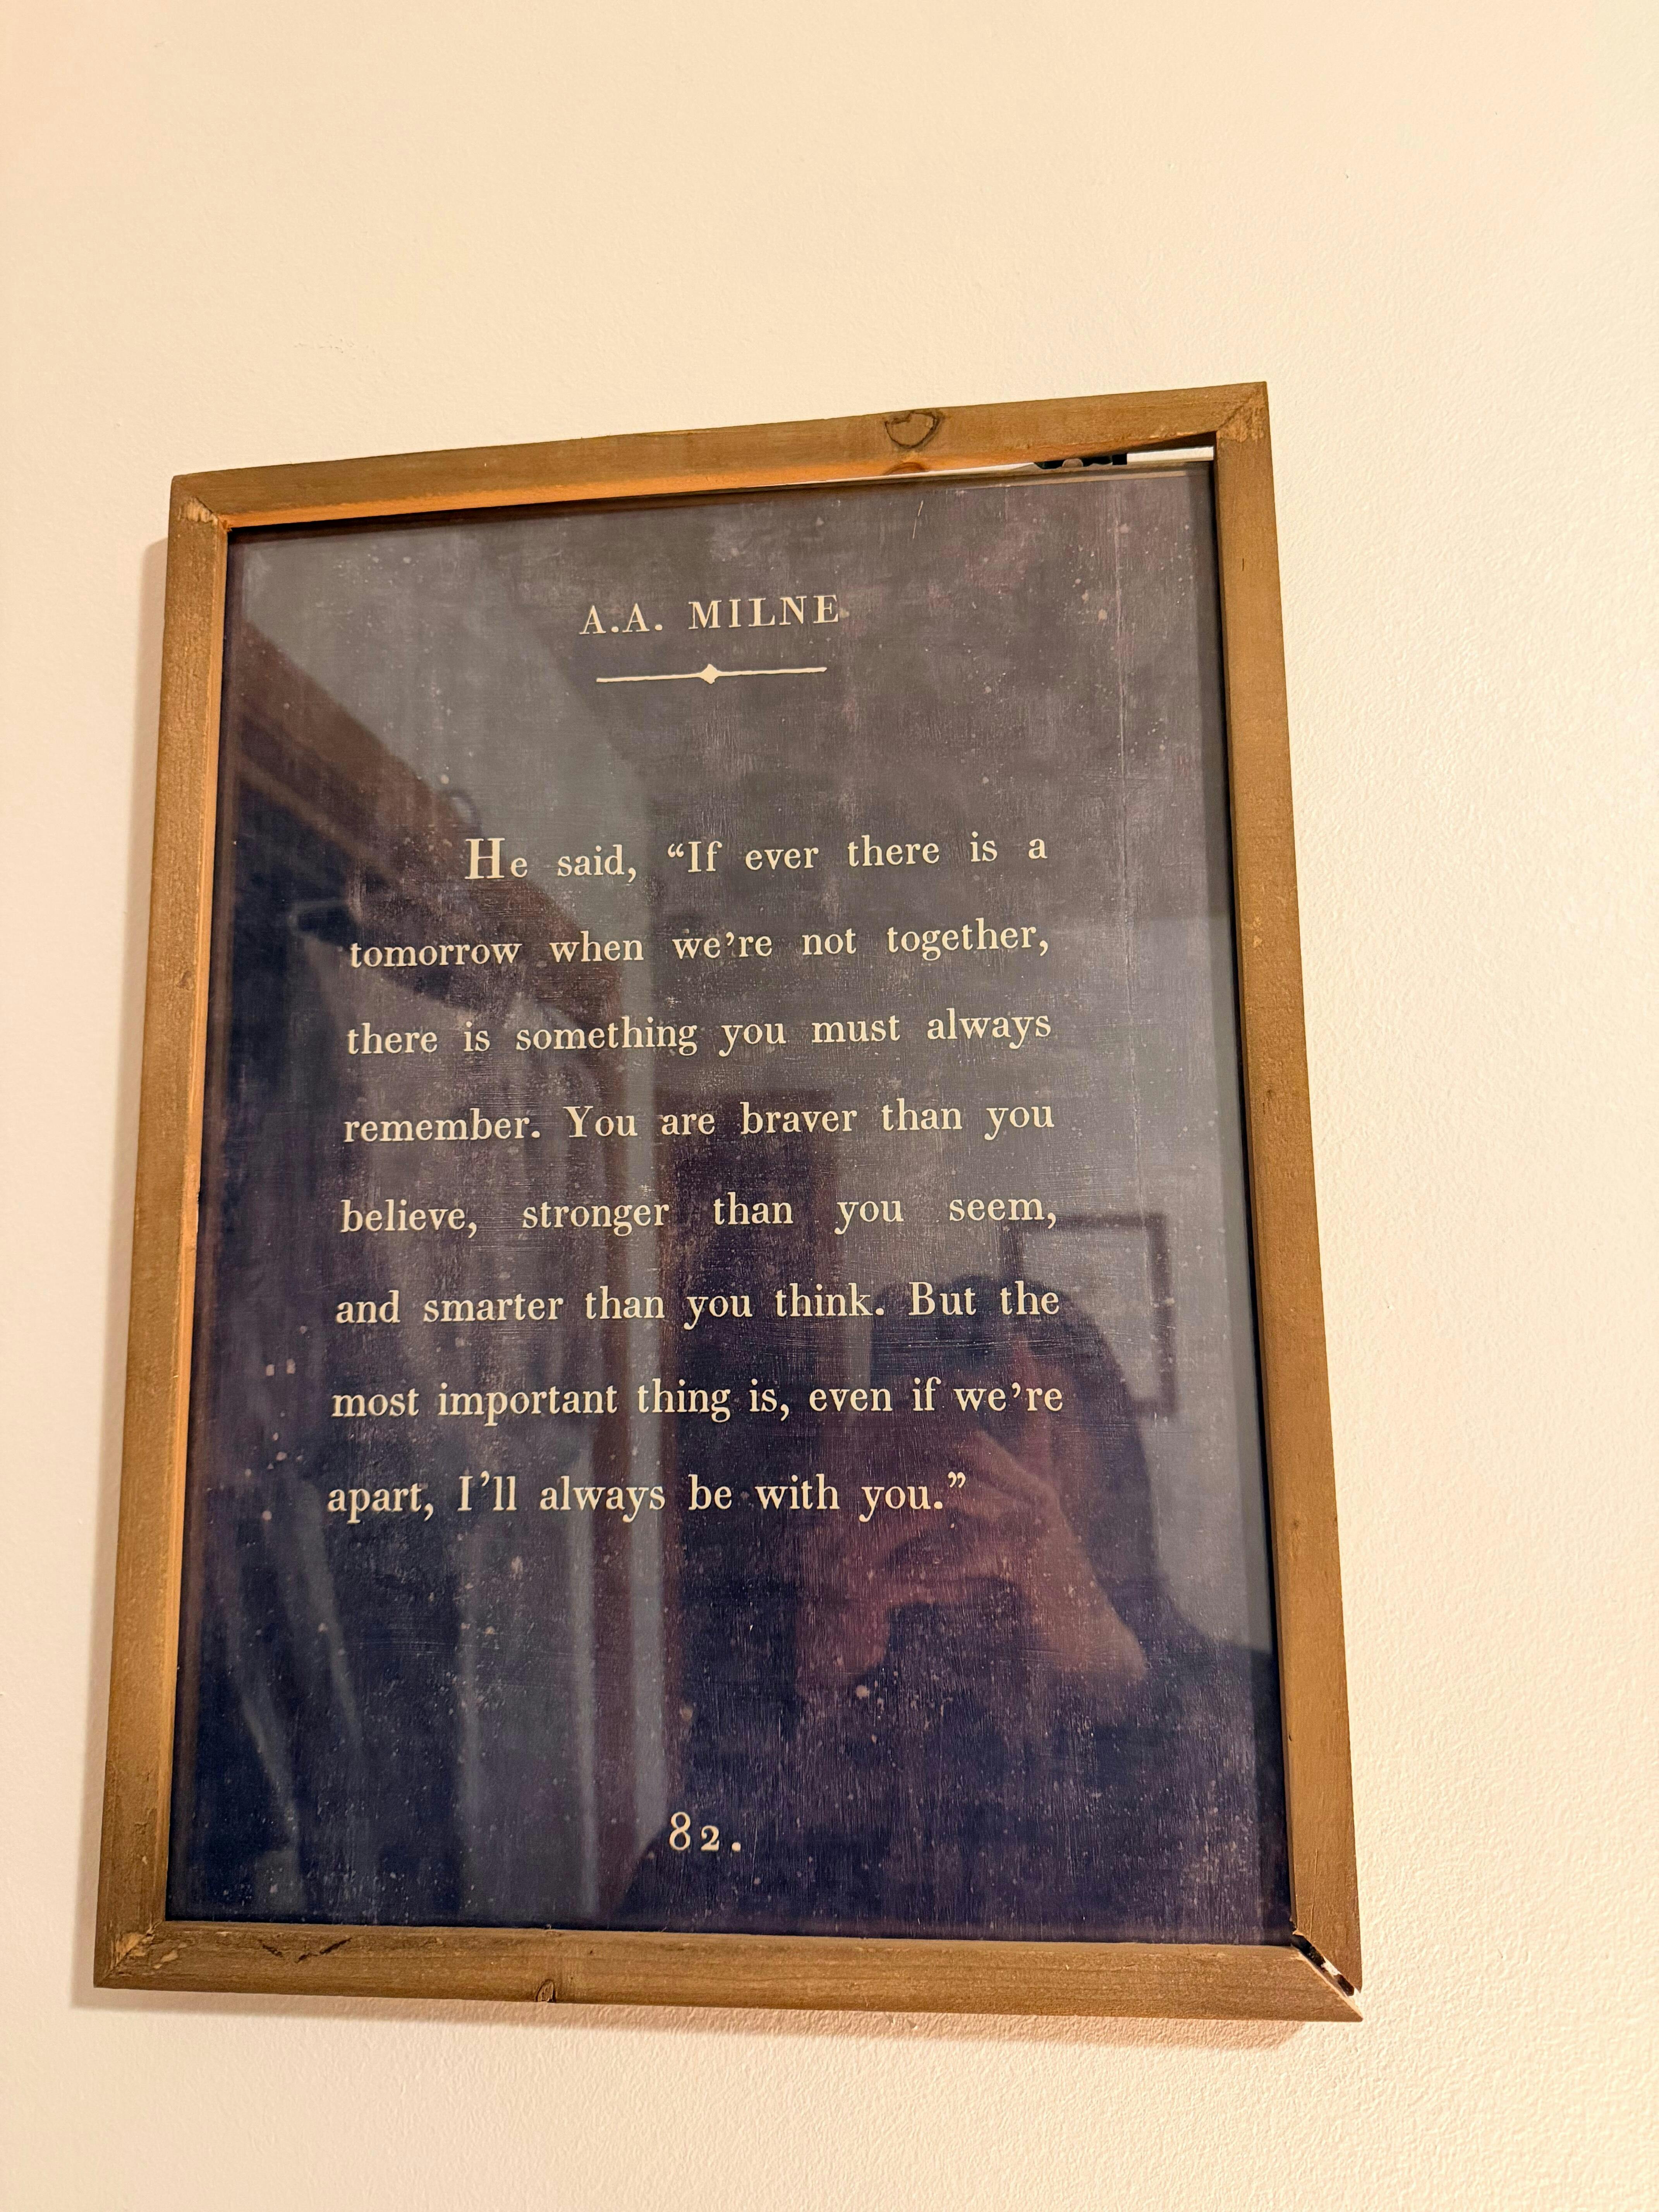 A.A. MILNE
He said, “If ever there is a
tomorrow when we’re not together,
there is something you must always
remember. You are braver than you
believe, stronger than you seem,
and smarter than you think. But the
most important thing is, even if we’re
apart, I’ll always be with you.”
82.